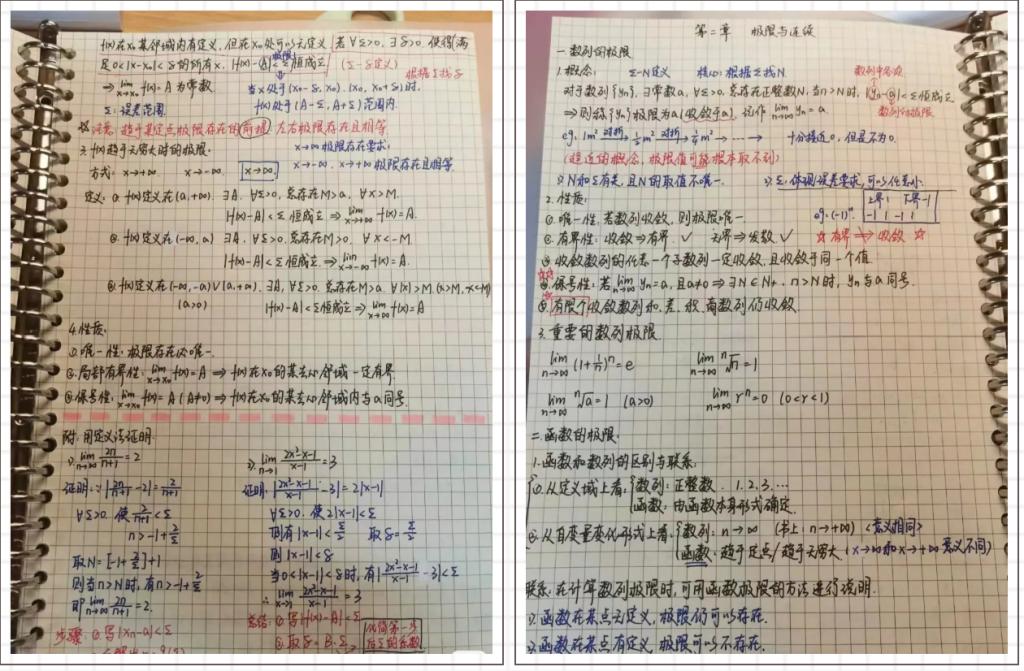 f(x)在x₀某邻域内有定义,但在x₀处可以无定义,若∀Σ>0,∃δ>0,使得(满
足0<|x-x₀|<δ的所有x,|f(x)-A|<Σ恒成立 (Σ-δ定义)
极限
根据Σ找δ
⇒ lim x→x₀ f(x)=A 为常数 当x处于(x₀-δ, x₀)、(x₀, x₀+δ)时,
Σ:误差范围 f(x)处于(A-Σ, A+Σ)范围内.
☆注意:趋于某定点极限存在的前提,左右极限存在且相等.
3. f(x)趋于无穷大时的极限: x→∞极限存在要求:
方式:x→+∞ x→-∞ x→∞ x→-∞、x→+∞极限存在且相等
定义:①f(x)定义在(a,+∞) ∃A. ∀Σ>0,总存在M>a, ∀x>M.
|f(x)-A|<Σ恒成立 ⇒ lim x→+∞ f(x)=A.
②f(x)定义在(-∞,a) ∃A. ∀Σ>0,总存在M>0, ∀x<-M
|f(x)-A|<Σ恒成立 ⇒ lim x→-∞ f(x)=A.
③f(x)定义在(-∞,-a)∪(a,+∞). ∃A, ∀Σ>0,总存在M>a. ∀|x|>M.(x>M,x<-M)
(a>0) |f(x)-A|<Σ恒成立 ⇒ lim x→∞ f(x)=A
4.性质:
①唯一性:极限存在必唯一.
②局部有界性:lim x→x₀ f(x)=A ⇒ f(x)在x₀的某去心邻域一定有界.
③保号性:lim x→x₀ f(x)=A(A≠0) ⇒ f(x)在x₀的某去心邻域内与a同号.
附:用定义法证明.
1) lim n→∞ 2n/(n+1)=2
证明:∵|2n/(n+1)-2|=2/(n+1)
∀Σ>0. 使2/(n+1)<Σ
n>-1+2/Σ
取N=[-1+2/Σ]+1
则当n>N时,有n>-1+2/Σ
即lim n→∞ 2n/(n+1)=2.
步骤:①写|xn-a|<Σ
2) lim x→1 (2x²-x-1)/(x-1)=3
证明:|(2x²-x-1)/(x-1)-3|=2|x-1|
∀Σ>0. 使2|x-1|<Σ
则有|x-1|<Σ/2 取δ=Σ/2
则|x-1|<δ
当0<|x-1|<δ时,有|(2x²-x-1)/(x-1)-3|<Σ
∴lim x→1 (2x²-x-1)/(x-1)=3
总结:①写|f(x)-A|<Σ
②取δ=B·Σ
化简第一步
后Σ的系数
第二章 极限与连续
一.数列的极限
1.概念: Σ-N定义 核心:根据Σ找N.
数列中各项
对于数列{yn},∃常数a, ∀Σ>0,总存在正整数N,当n>N时,|yn-a|<Σ恒成立
⇒则称{yn}极限为a(收敛于a).记作 lim n→∞ yn=a.
数列的极限
eg: 1m² 对折→ 1/2m² 对折→ 1/4m² → …… → 十分接近0,但是不为0.
(趋近的概念,极限值可能根本取不到)
1)N和Σ有关,且N的取值不唯一. 2)Σ:体现误差要求,可以任意小.
2.性质:
①唯一性:若数列收敛,则极限唯一.
eg.(-1)ⁿ 上界1 下界-1
-1 1 -1 1
②有界性:收敛⇒有界.✓ 无界⇒发散✓ ☆有界⇏收敛☆
③收敛数列的任意一个子数列一定收敛,且收敛于同一个值.
④保号性:若lim n→∞ yn=a,且a≠0⇒∃N∈N+. n>N时,yn与a同号.
⑤有限个收敛数列和、差、积、商数列仍收敛.
3.重要的数列极限.
lim n→∞ (1+1/n)ⁿ=e lim n→∞ ⁿ√n=1
lim n→∞ ⁿ√a=1 (a>0) lim n→∞ rⁿ=0 (0<r<1)
二.函数的极限.
1.函数和数列的区别与联系:
①从定义域上看:数列:正整数. 1.2.3.…
函数:由函数本身形式确定.
②从自变量变化形式上看:数列:n→∞ (书上:n→+∞) <意义相同>
函数:趋于定点/趋于无穷大(x→∞和x→+∞意义不同)
联系:在计算数列极限时,可用函数极限的方法进行说明.
1)函数在某点无定义,极限仍可以存在.
2)函数在某点有定义,极限可以不存在.